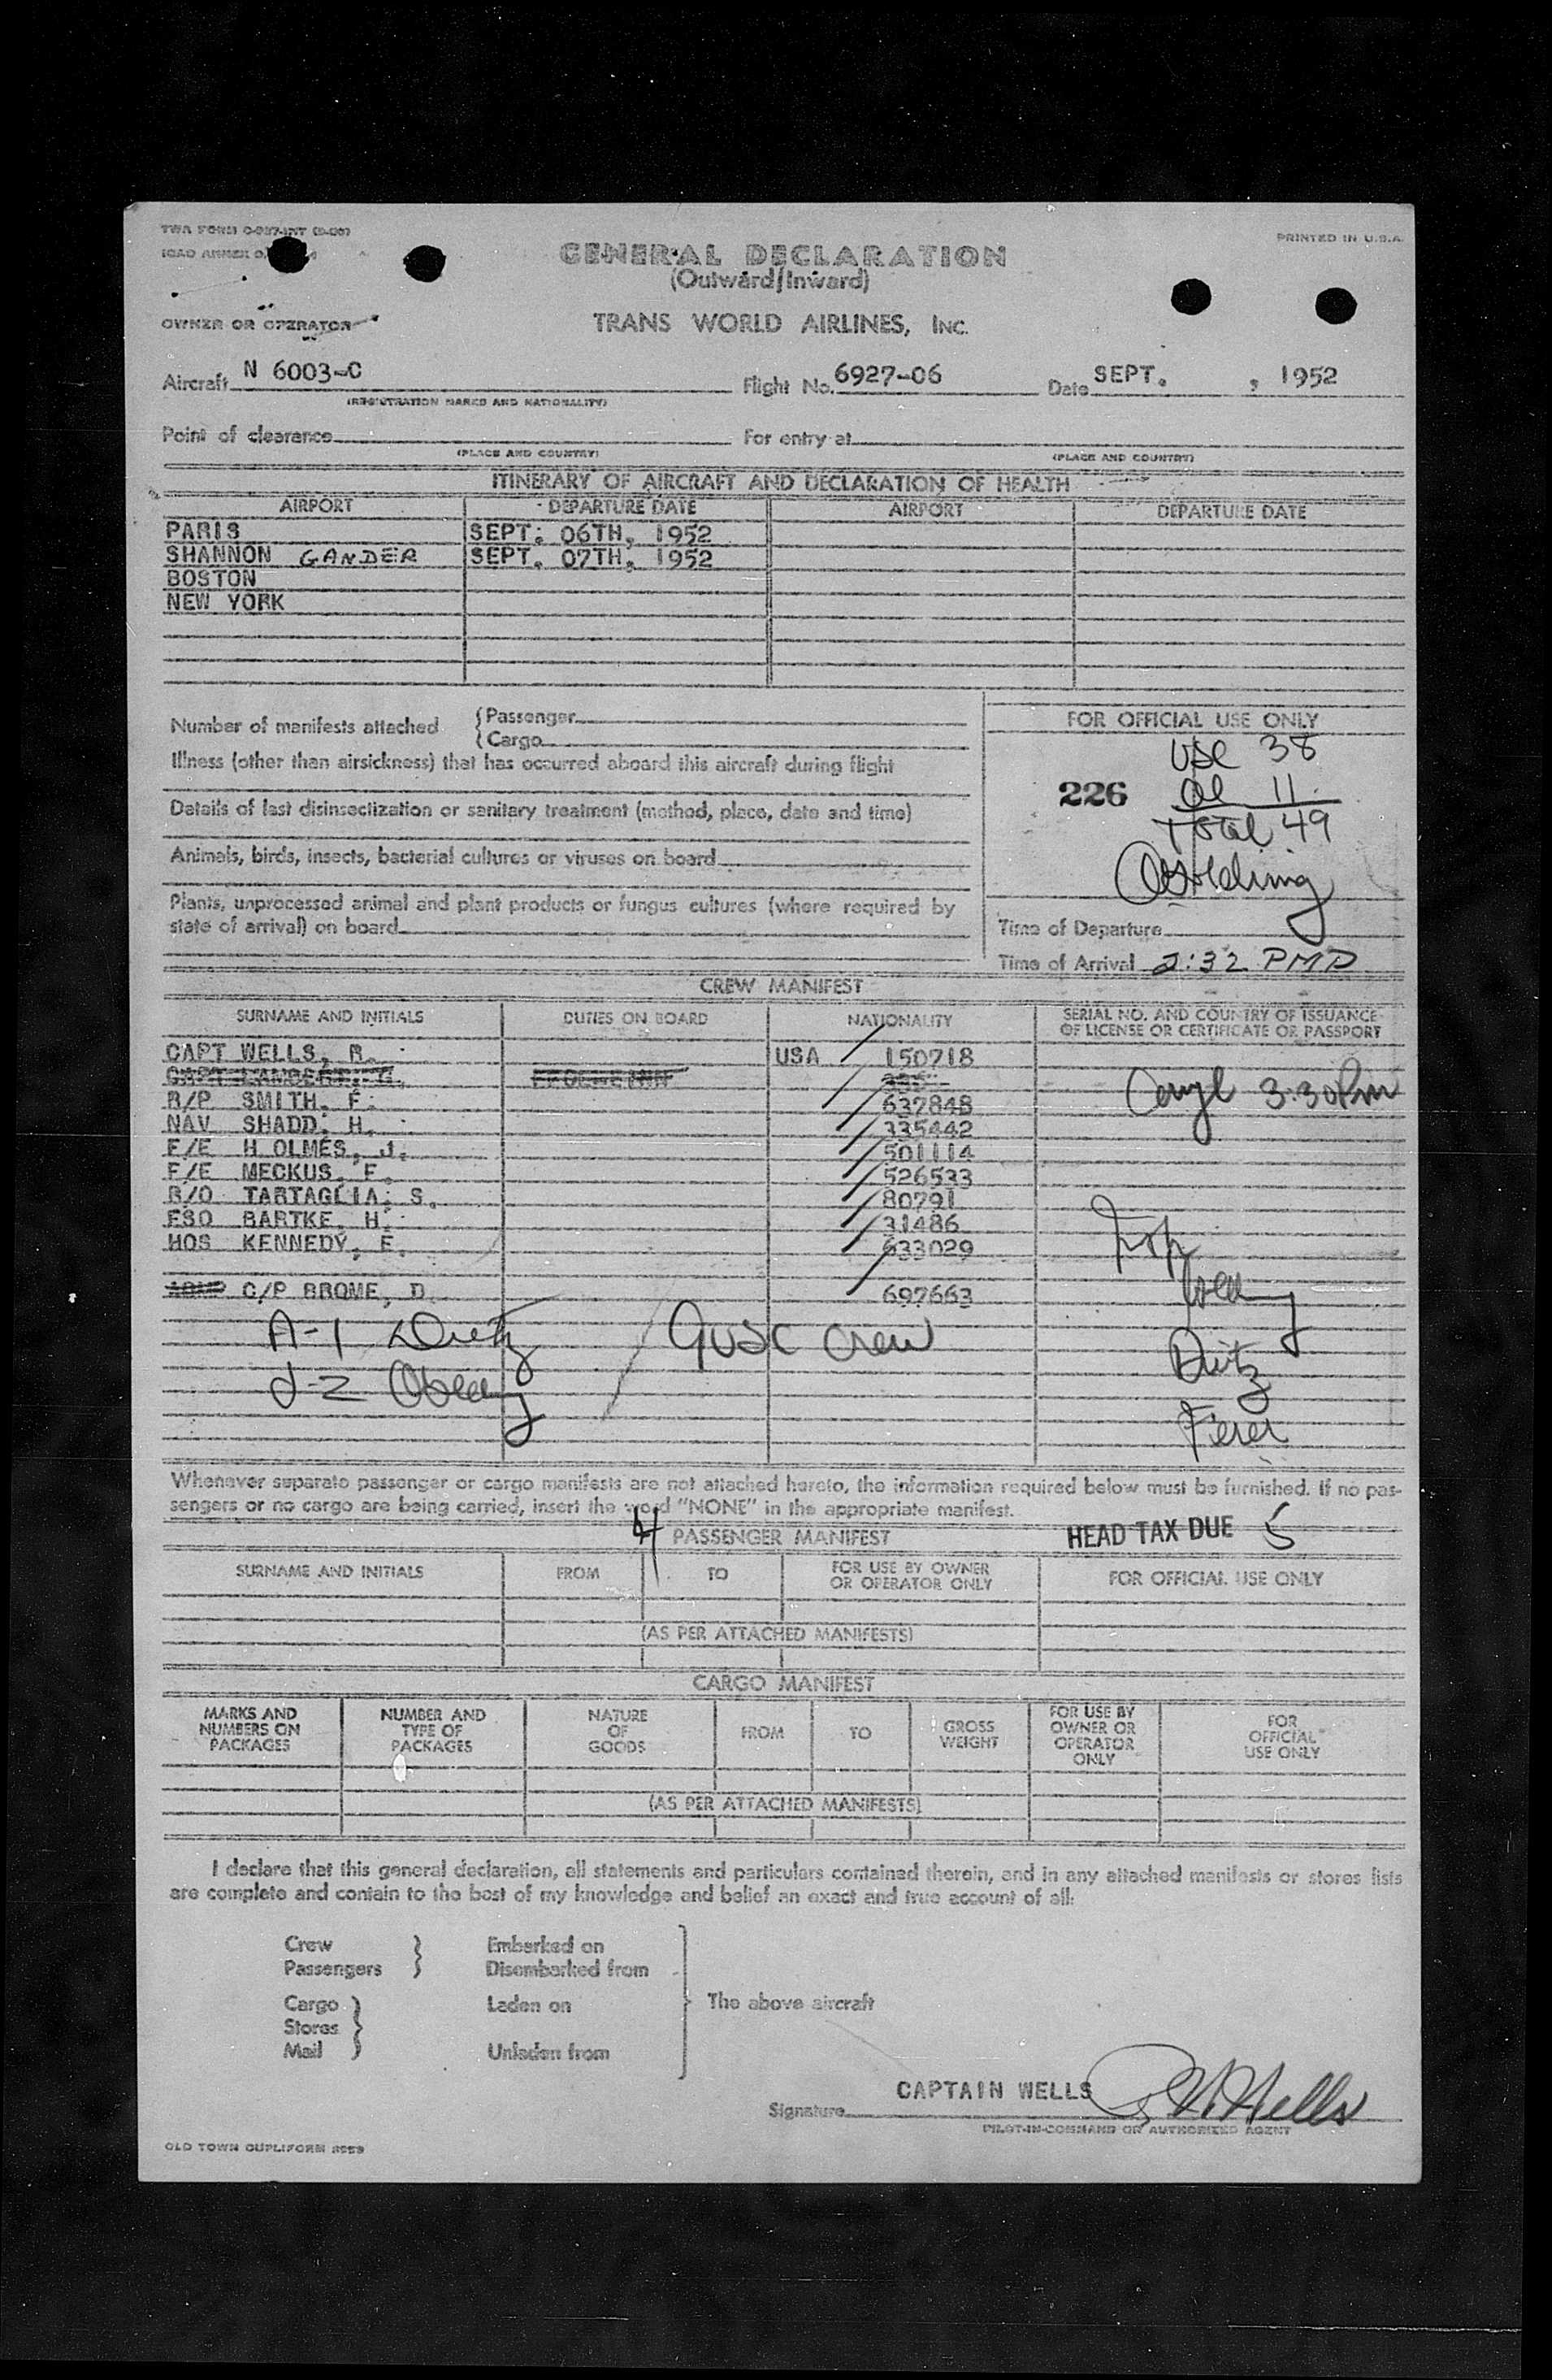 TWA FORM
PRINTED IN U.S.A.
GENERAL DECLARATION
(Outward/Inward)
OWNER OR OPERATOR
TRANS WORLD AIRLINES, INC.
Aircraft N 6003-C Flight No. 6927-06 Date SEPT. , 1952
(REGISTRATION MARKS AND NATIONALITY)
Point of clearance For entry at
(PLACE AND COUNTRY) (PLACE AND COUNTRY)
ITINERARY OF AIRCRAFT AND DECLARATION OF HEALTH
AIRPORT DEPARTURE DATE AIRPORT DEPARTURE DATE
PARIS SEPT. 06TH, 1952
SHANNON GANDER SEPT. 07TH, 1952
BOSTON
NEW YORK
Number of manifests attached { Passenger
{ Cargo
FOR OFFICIAL USE ONLY
USC 38
226 al 11
Total 49
Illness (other than airsickness) that has occurred aboard this aircraft during flight
Details of last disinsectization or sanitary treatment (method, place, date and time)
Animals, birds, insects, bacterial cultures or viruses on board
Plants, unprocessed animal and plant products or fungus cultures (where required by
state of arrival) on board
Time of Departure
Time of Arrival 2:32 PMD
CREW MANIFEST
SURNAME AND INITIALS DUTIES ON BOARD NATIONALITY SERIAL NO. AND COUNTRY OF ISSUANCE
OF LICENSE OR CERTIFICATE OR PASSPORT
CAPT WELLS, R. USA 150718
3:30 Pm
R/P SMITH, F. 637848
NAV SHADD, H. 335442
F/E H OLMES, J. 501114
F/E MECKUS, F. 526533
R/O TARTAGLIA, S. 80791
FSO BARTKE, H. 31486
HOS KENNEDY, E. 633029
C/P BROME, D. 697663
A-1 Dietz 9 USC crew
Dietz
Whenever separate passenger or cargo manifests are not attached hereto, the information required below must be furnished. If no pas-
sengers or no cargo are being carried, insert the word "NONE" in the appropriate manifest.
4 PASSENGER MANIFEST HEAD TAX DUE 5
SURNAME AND INITIALS FROM TO FOR USE BY OWNER
OR OPERATOR ONLY FOR OFFICIAL USE ONLY
(AS PER ATTACHED MANIFESTS)
CARGO MANIFEST
MARKS AND
NUMBERS ON
PACKAGES
NUMBER AND
TYPE OF
PACKAGES
NATURE
OF
GOODS
FROM
TO
GROSS
WEIGHT
FOR USE BY
OWNER OR
OPERATOR
ONLY
FOR
OFFICIAL
USE ONLY
(AS PER ATTACHED MANIFESTS)
I declare that this general declaration, all statements and particulars contained therein, and in any attached manifests or stores lists
are complete and contain to the best of my knowledge and belief an exact and true account of all:
Crew } Embarked on
Passengers } Disembarked from
Cargo } Laden on The above aircraft
Stores }
Mail } Unladen from
CAPTAIN WELLS
Signature R Wells
PILOT-IN-COMMAND OR AUTHORIZED AGENT
OLD TOWN DUPLIFORM